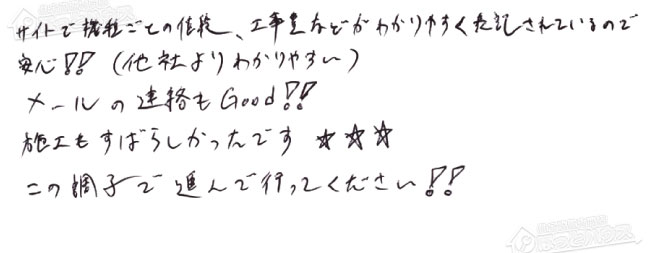 サイトで機種ごとの値段、工事費などがわかりやすく表記されているので
安心!! (他社よりわかりやすい)
メールの連絡もGood!!
施工もすばらしかったです ☆☆☆
この調子で進んで行ってください!!